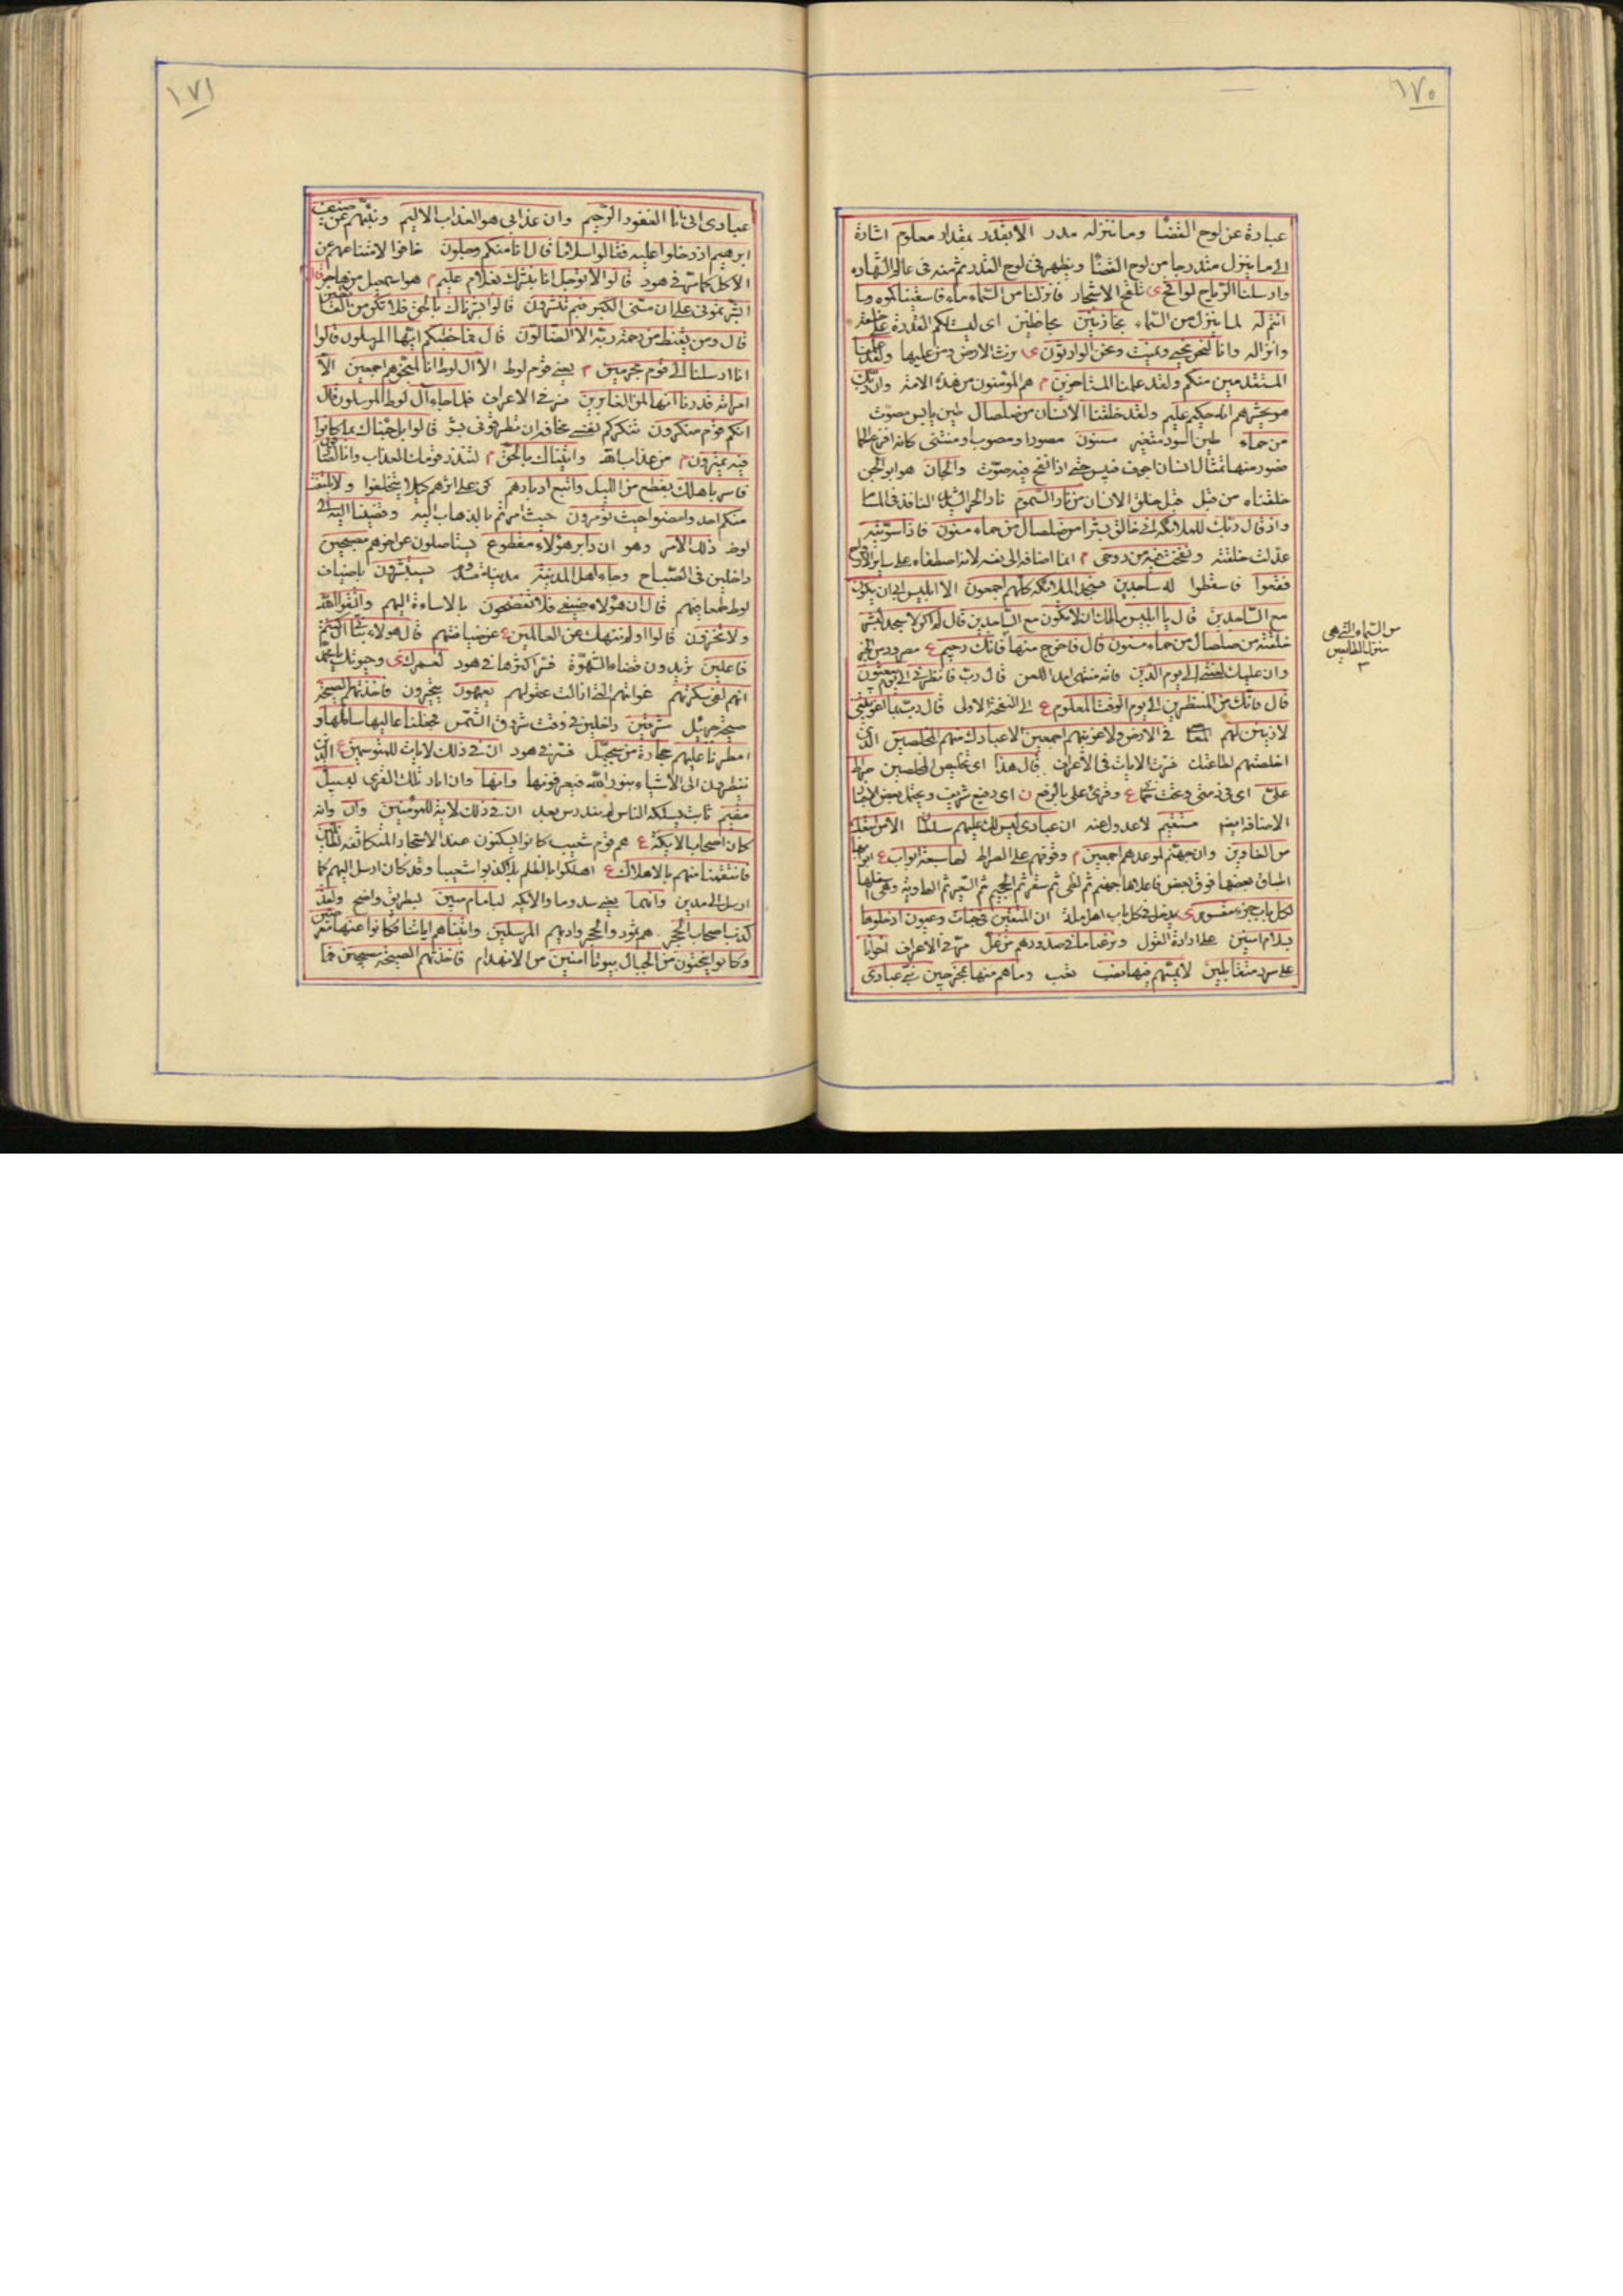 ١٧٠
عبارة عن لوح القضا وما ننزله مدر الا بقدر بمقدار معلوم اشارة
الى ما ينزل متدرجا من لوح القضا ويظهر فى لوح القدر ثم منه فى عالم الشهاده
وارسلنا الرياح لواقح ى تلقح الاشجار فانزلنا من السماء ماء فاسقيناكموه وما
انتم له لما ينزل من السماء بخازنين بحافظين اى ليست لكم القدرة على خلقه
وانزاله وانا لنحن نحيى ونميت ونحن الوارثون ى نرث الارض ومن عليها ولقد علمنا
المستقدمين منكم ولقد علمنا المستاخرين م هم المؤمنون من هذه الامة وان ربك
هو يحشرهم انه حكيم عليم ولقد خلقنا الانسان من صلصال طين يابس مصوت
من حماء طين اسود متغير مسنون مصورا ومصبوب او منتنى كانه افرغ الحما
فصور منها تمثال انسان اجوف فيبس حتى اذا نفخ فيه صوت والجان هو ابو الجن
خلقناه من قبل قبل خلق الانسان من نار السموم نار الحر الشديد النافذ فى المسا
واذ قال ربك للملائكة انى خالق بشرا من صلصال من حماء مسنون فاذا سويته
عدلت خلقته ونفخت فيه من روحى م انما اضافه الى نفسه لانه اصطفاه على ساير الارواح
فقعوا فاسقطوا له ساجدين فسجد الملائكة كلهم اجمعون الا ابليس ابى ان يكون
مع الساجدين قال يا ابليس مالك ان لا تكون مع الساجدين قال لم اكن لاسجد لبشر
خلقته من صلصال من حماء مسنون قال فاخرج منها فانك رجيم ع مطرود من الخير
وان عليك لعنتى الى يوم الدين فانه منتهى امد اللعن قال رب فانظرنى الى يوم يبعثون
قال فانك من المنظرين الى يوم الوقت المعلوم ع الى النفخة الاولى قال رب بما اغويتنى
لازينن لهم المعاصى فى الارض ولاغوينهم اجمعين الا عبادك منهم المخلصين الذين
اخلصتهم لطاعتك فسرت الايات فى الاعراف قال هذا اى تخليص المخلصين صراط
على اى فى ذمتى وتحت ع وقرئ على بالرفع ن اى رفيع شريف ويحتمل بعض الاخبار
الاضافة ايضا مستقيم لا عدول عنه ان عبادى ليس لك عليهم سلطان الا من اتبعك
من الغاوين وان جهنم لموعدهم اجمعين م وقوفهم على الصراط لها سبعة ابواب ع ابوابها
اطباق بعضها فوق بعض فاعلاها جهنم ثم لظى ثم سقر ثم الجحيم ثم السعير ثم الهاوية وهى اسفلها
لكل باب جزء مقسوم ى يدخل فى كل باب اهل ملة ان المتقين فى جنات وعيون ادخلوها
بسلام امنين على ارادة القول ونزعنا ما فى صدورهم من غل مر فى الاعراف اخوانا
على سرر متقابلين لا يمسهم فيها نصب تعب وما هم منها بمخرجين نبئ عبادى
من السماء التى هى
منزل
٣
١٧١
عبادى انى انا الغفور الرحيم وان عذابى هو العذاب الاليم ونبئهم عن ضيف
ابرهيم اذ دخلوا عليه فقالوا سلاما قال انا منكم وجلون خافوا لامتناعهم عن
الاكل كما مر فى هود قالوا لا توجل انا نبشرك بغلام عليم م هو اسمعيل من هاجر قال
ابشرتمونى على ان مسنى الكبر فبم تبشرون قالوا بشرناك بالحق فلا تكن من القانطين
قال ومن يقنط من رحمة ربه الا الضالون قال فما خطبكم ايها المرسلون قالوا
انا ارسلنا الى قوم مجرمين م يعنى قوم لوط الا ال لوط انا لمنجوهم اجمعين الا
امراته قدرنا انها لمن الغابرين مر فى الاعراف فلما جاء آل لوط المرسلون قال
انكم قوم منكرون تنكركم نفسى مخافة ان تطرقونى بشر قالوا بل جئناك بما كانوا
فيه يمترون م من عذاب الله واتيناك بالحق م لتنذر قومك العذاب وانا لصادقون
فاسر باهلك بقطع من الليل واتبع ادبارهم كن على اثرهم كيلا يتخلفوا ولا يلتفت
منكم احد وامضوا حيث تؤمرون حيث امرتم بالذهاب اليه وقضينا اليه الى
لوط ذلك الامر وهو ان دابر هؤلاء مقطوع يستاصلون عن اخرهم مصبحين
داخلين فى الصباح وجاء اهل المدينة مدينة سدوم يستبشرون باضياف
لوط طمعا فيهم قال ان هؤلاء ضيفى فلا تفضحون بالاساءة اليهم واتقوا الله
ولا تخزون قالوا اولم ننهك عن العالمين ع عن ضيافتهم قال هؤلاء بناتى ان كنتم
فاعلين تريدون قضاء الشهوة فسر اكثرها فى هود لعمرك ى وحيوتك يا محمد
انهم لفى سكرتهم غوايتهم التى ازالت عقولهم يعمهون يتحيرون فاخذتهم الصيحة
صيحة جبرئيل مشرقين داخلين فى وقت شروق الشمس فجعلنا عاليها سافلها و
امطرنا عليهم حجارة من سجيل فسر فى هود ان فى ذلك لايات للمتوسمين ع الذين
ينظرون الى الاشياء بنور الله فيعرفونها وانها وان اثار تلك القرى لبسبيل
مقيم ثابت يسلكه الناس لم يندرس بعد ان فى ذلك لاية للمؤمنين وان وانه
كان اصحاب الايكة ع هم قوم شعيب كانوا يسكنون عند الاشجار المتكاثفة لظالمين
فانتقمنا منهم بالاهلاك ع اهلكوا بالظلم لما كذبوا شعيبا وقد كان ارسل اليهم كما
ارسل الى مدين وانهما يعنى سدوما والايكة لبامام مبين لبطريق واضح ولقد
كذب اصحاب الحجر هم ثمود والحجر واديهم المرسلين واتيناهم اياتنا فكانوا عنها معرضين
وكانوا ينحتون من الجبال بيوتا امنين من الانهدام فاخذتهم الصيحة مصبحين فما